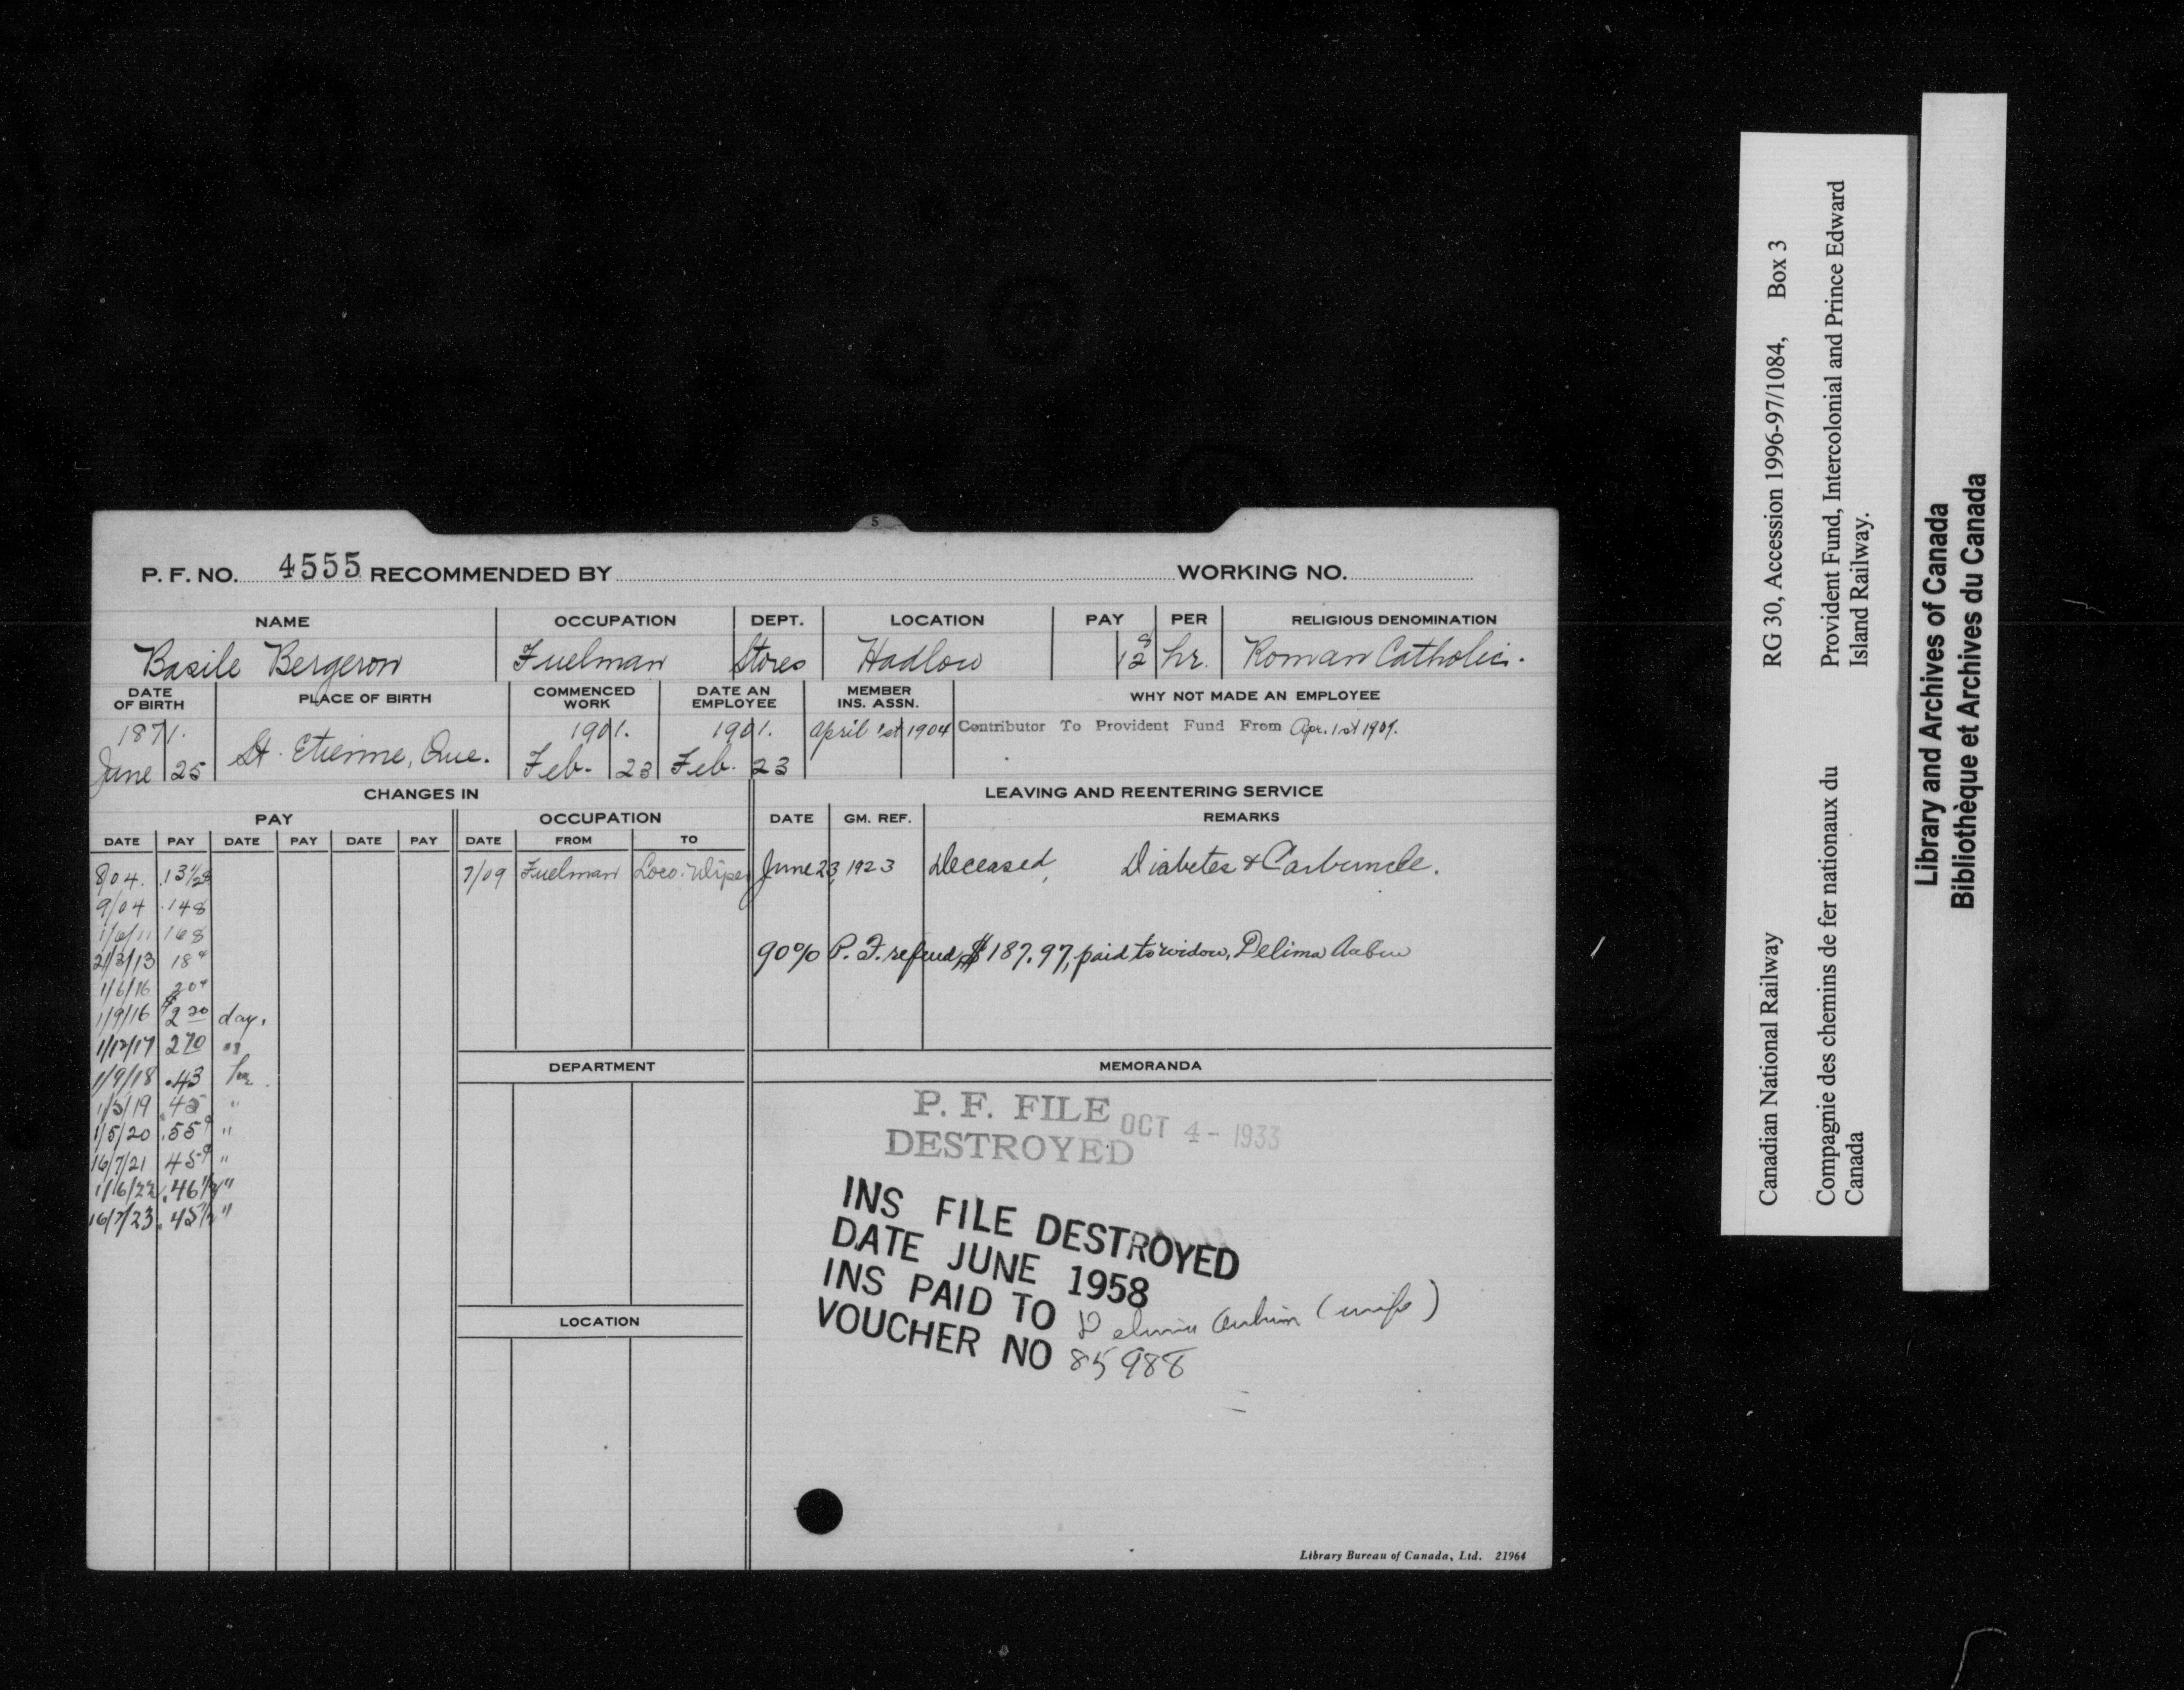 5
P. F. NO. 4555 RECOMMENDED BY WORKING NO.
NAME OCCUPATION DEPT. LOCATION PAY PER RELIGIOUS DENOMINATION
Basile Bergeron Fuelman Stores Hadlow 12 hr. Roman Catholic.
DATE OF BIRTH PLACE OF BIRTH COMMENCED WORK DATE AN EMPLOYEE MEMBER INS. ASSN. WHY NOT MADE AN EMPLOYEE
1871. 1901. 1901. April 1st 1904 Contributor To Provident Fund From Apr. 1st 1907.
June 25 St. Etienne, Que. Feb. 23 Feb. 23
CHANGES IN LEAVING AND REENTERING SERVICE
PAY OCCUPATION DATE GM. REF. REMARKS
DATE PAY DATE PAY DATE PAY DATE FROM TO
8/04. .13½ 7/09 Fuelman Loco. Wiper June 23, 1923 Deceased, Diabetes & Carbuncle.
9/04 .14¢
1/6/11 16¢
21/3/13 18¢
90% P. F. refund, $187.97, paid to widow, Delima Aubin
1/6/16 20¢
1/9/16 $2 20 day.
1/12/17 2 70 "
1/9/18 .43 hr.
1/5/19 .45 "
1/5/20 .55¢ "
16/7/21 45¢ "
1/16/22 .46½ "
16/7/23 .45½ "
DEPARTMENT
LOCATION
MEMORANDA
P. F. FILE
DESTROYED OCT 4 - 1933
INS FILE DESTROYED
DATE JUNE 1958
INS PAID TO Delima Aubin (wife)
VOUCHER NO 85988
Library Bureau of Canada, Ltd. 21964
Canadian National Railway RG 30, Accession 1996-97/1084, Box 3
Compagnie des chemins de fer nationaux du Canada
Provident Fund, Intercolonial and Prince Edward Island Railway.
Library and Archives of Canada
Bibliothèque et Archives du Canada